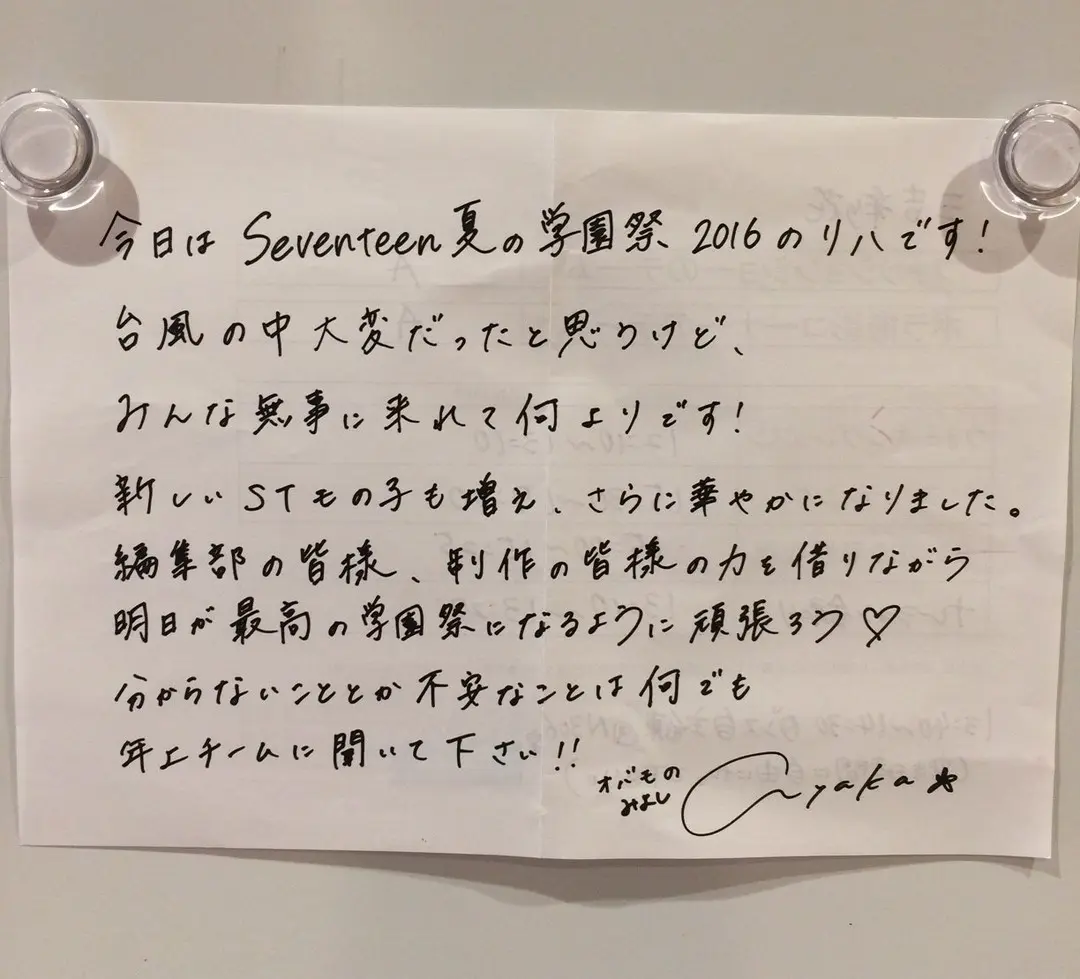 今日は Seventeen夏の学園祭 2016 のリハです!
台風の中大変だったと思うけど、
みんな無事に来れて何よりです!
新しいSTモの子も増え、さらに華やかになりました。
編集部の皆様、制作の皆様の力を借りながら
明日が最高の学園祭になるように頑張ろう♡
分からないこととか不安なことは何でも
年上チームに聞いて下さい!!
オバもの
みよし
Ayaka